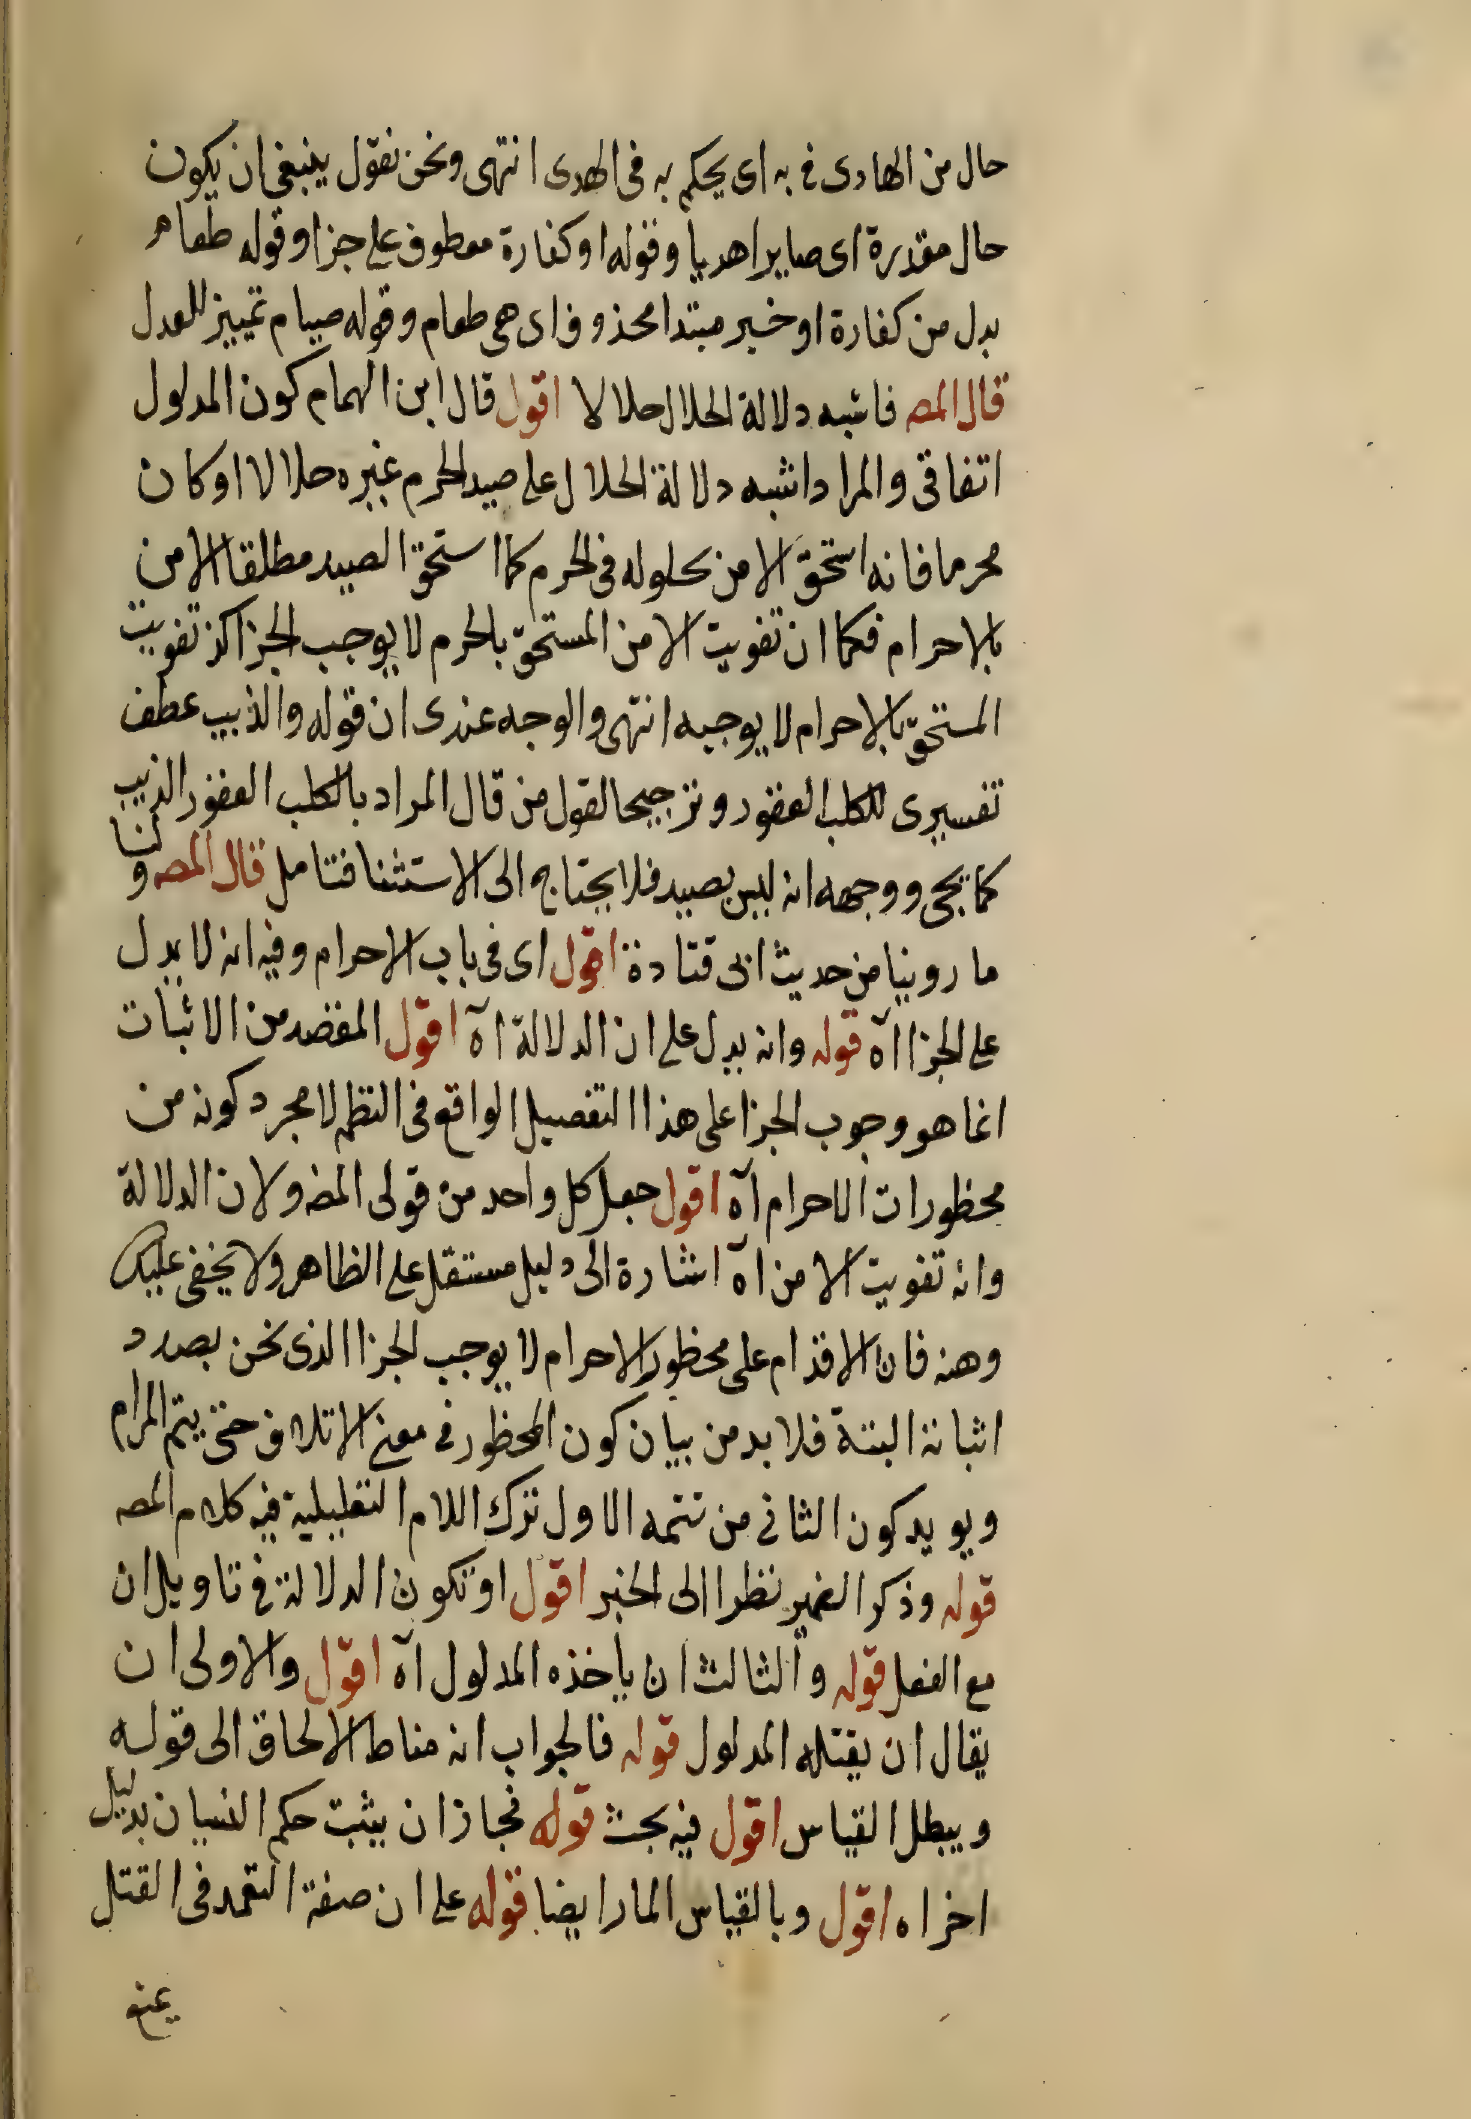 حال من الهادى فى به اى يحكم به فى الهدى انتهى ونحن نقول ينبغى ان يكون
حال مقدرة اى صايرا هديا وقوله او كفارة معطوف على جزا وقوله طعام
بدل من كفارة او خبر مبتدا محذوف اى هى طعام وقوله صيام تمييز للعدل
قال المص فاشبه دلالة الحلال حلالا اقول قال ابن الهمام كون المدلول
اتفاقى والمراد اشبه دلالة الحلال على صيد الحرم غيره حلالا او كان
محرما فانه استحق الامن بحلوله فى الحرم كما استحق الصيد مطلقا الامن
بالاحرام فكما ان تفويت الامن المستحق بالحرم لا يوجب الجزا كذ تفويت
المستحق بالاحرام لا يوجبه انتهى والوجه عندى ان قوله والذيب عطف
تفسيرى للكلب العقور وترجيحا لقول من قال المراد بالكلب العقور الذيب
كما يجى ووجهه انه ليس بصيد فلا يحتاج الى الاستثنا فتامل قال المص ولنا
ما روينا من حديث ابى قتادة اقول اى فى باب الاحرام وفيه انه لا يدل
على الجزا اه قوله وانه يدل على ان الدلالة اه اقول المقصد من الاثبات
انما هو وجوب الجزا على هذا التفصيل الواقع فى النظم لا مجرد كونه من
محظورات الاحرام اه اقول جعل كل واحد من قولى المص ولان الدلالة
وانه تفويت الامن اه اشارة الى دليل مستقل على الظاهر ولا يخفى عليك
وهنه فان الاقدام على محظور الاحرام لا يوجب الجزا الذى نحن بصدد
اثباته البتة فلا بد من بيان كون المحظور فى معنى الاتلاف حتى يتم المرام
ويويد كون الثانى من تتمه الاول ترك اللام التعليلية فيه كلام المص
قوله وذكر الضمير نظرا الى الخبر اقول او تكون الدلالة فى تاويل ان
مع الفعل قوله والثالث ان ياخذه المدلول اه اقول والاولى ان
يقال ان يقتله المدلول قوله فالجواب انه مناط الالحاق الى قوله
ويبطل القياس اقول فيه بحث قوله فجاز ان يثبت حكم النسيان بدليل
اخر اه اقول وبالقياس المار ايضا قوله على ان صفة التعمد فى القتل
يمنع